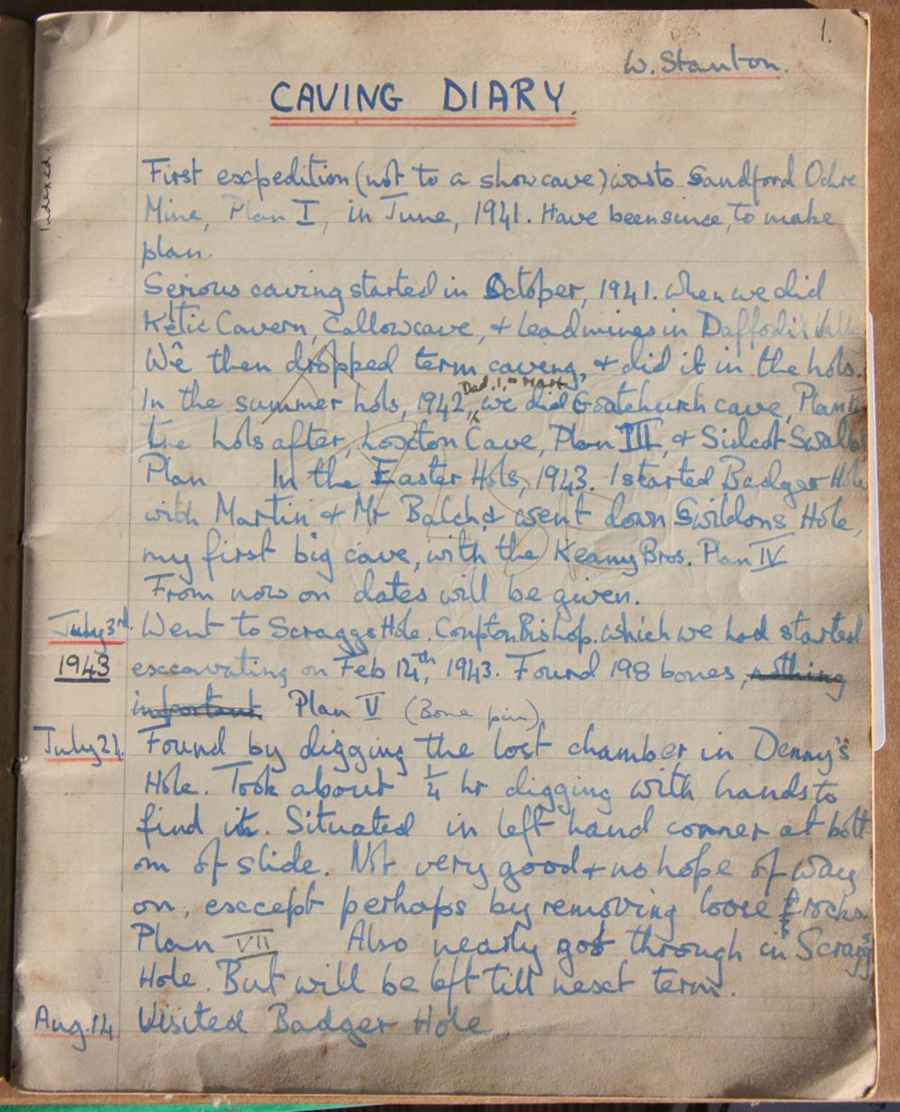 1.
W. Stanton.
CAVING DIARY.
Indexed
First expedition (not to a showcave) was to Sandford Ochre
Mine, Plan I, in June, 1941. Have been since, to make
plan.
Serious caving started in October, 1941. when we did
Keltic Cavern, Callow cave, & leadmines in Daffodil
We then dropped term caving, & did it in the hols.
Dad, I, & Martin,
In the summer hols, 1942, we did Goatchurch cave, Plan
the hols after, Loxton Cave, Plan III, & Sidcot Swallet
Plan In the Easter Hols, 1943. I started Badger Hole
with Martin & Mr Balch, & went down Swildons Hole,
my first big cave, with the Keany Bros. Plan IV
From now on dates will be given.
July 3rd Went to Scraggs Hole. Compton Bishop. which we had started
1943 excavating on Feb 12th, 1943. Found 198 bones, nothing
important Plan V (Bone pin)
July 21. Found by digging the lost chamber in Denny's
Hole. Took about 1/4 hr digging with hands to
find it. Situated in left hand corner at bott
om of slide. Not very good & no hope of way
on, except perhaps by removing loose rocks.
Plan VII Also nearly got through in Scraggs
Hole. But will be left till next term.
Aug. 14 Visited Badger Hole